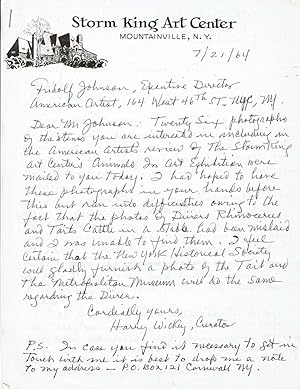 Storm King Art Center
MOUNTAINVILLE, N.Y.
7/21/64
Fridolf Johnson, Executive Director
American Artist, 164 West 46th ST. NYC, NY.
Dear Mr Johnson: Twenty Six photographs
of the items you are interested in including in
the American Artists review of The Storm King
Art Center's Animals In Art Exhibition were
mailed to you today. I had hoped to have
these photographs in your hands before
this but ran into difficulties owing to the
fact that the photos of Dürers Rhinoceros
and Taits Cattle in a Stable had been mislaid
and I was unable to find them. I feel
certain that the New York Historical Society
will gladly furnish a photo by the Tait and
The Metropolitan Museum will do the same
regarding the Dürer.
Cordially yours,
Harry Wickey, Curator
P.S. In case you find it necessary to get in
Touch with me it is best to drop me a note
to my address – P.O. BOX 121 Cornwall NY.